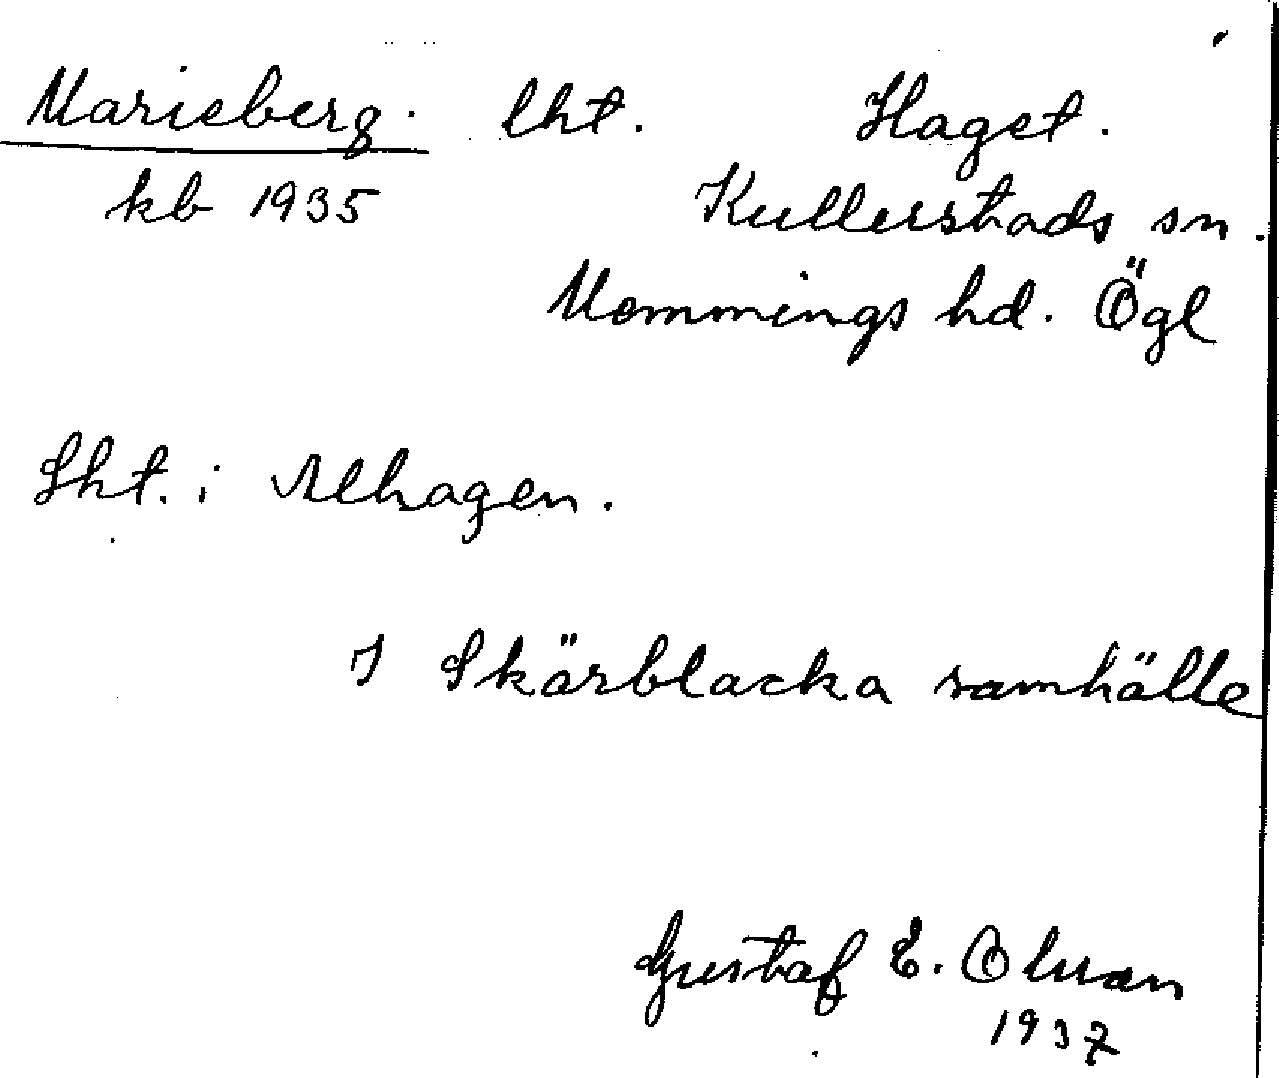 Marieberg. lht. Haget.
kb 1935 Kullerstads sn.
Memmings hd. Ögl
Lht. i Alhagen.
I Skärblacka samhälle
Gustaf E. Olsson
1937